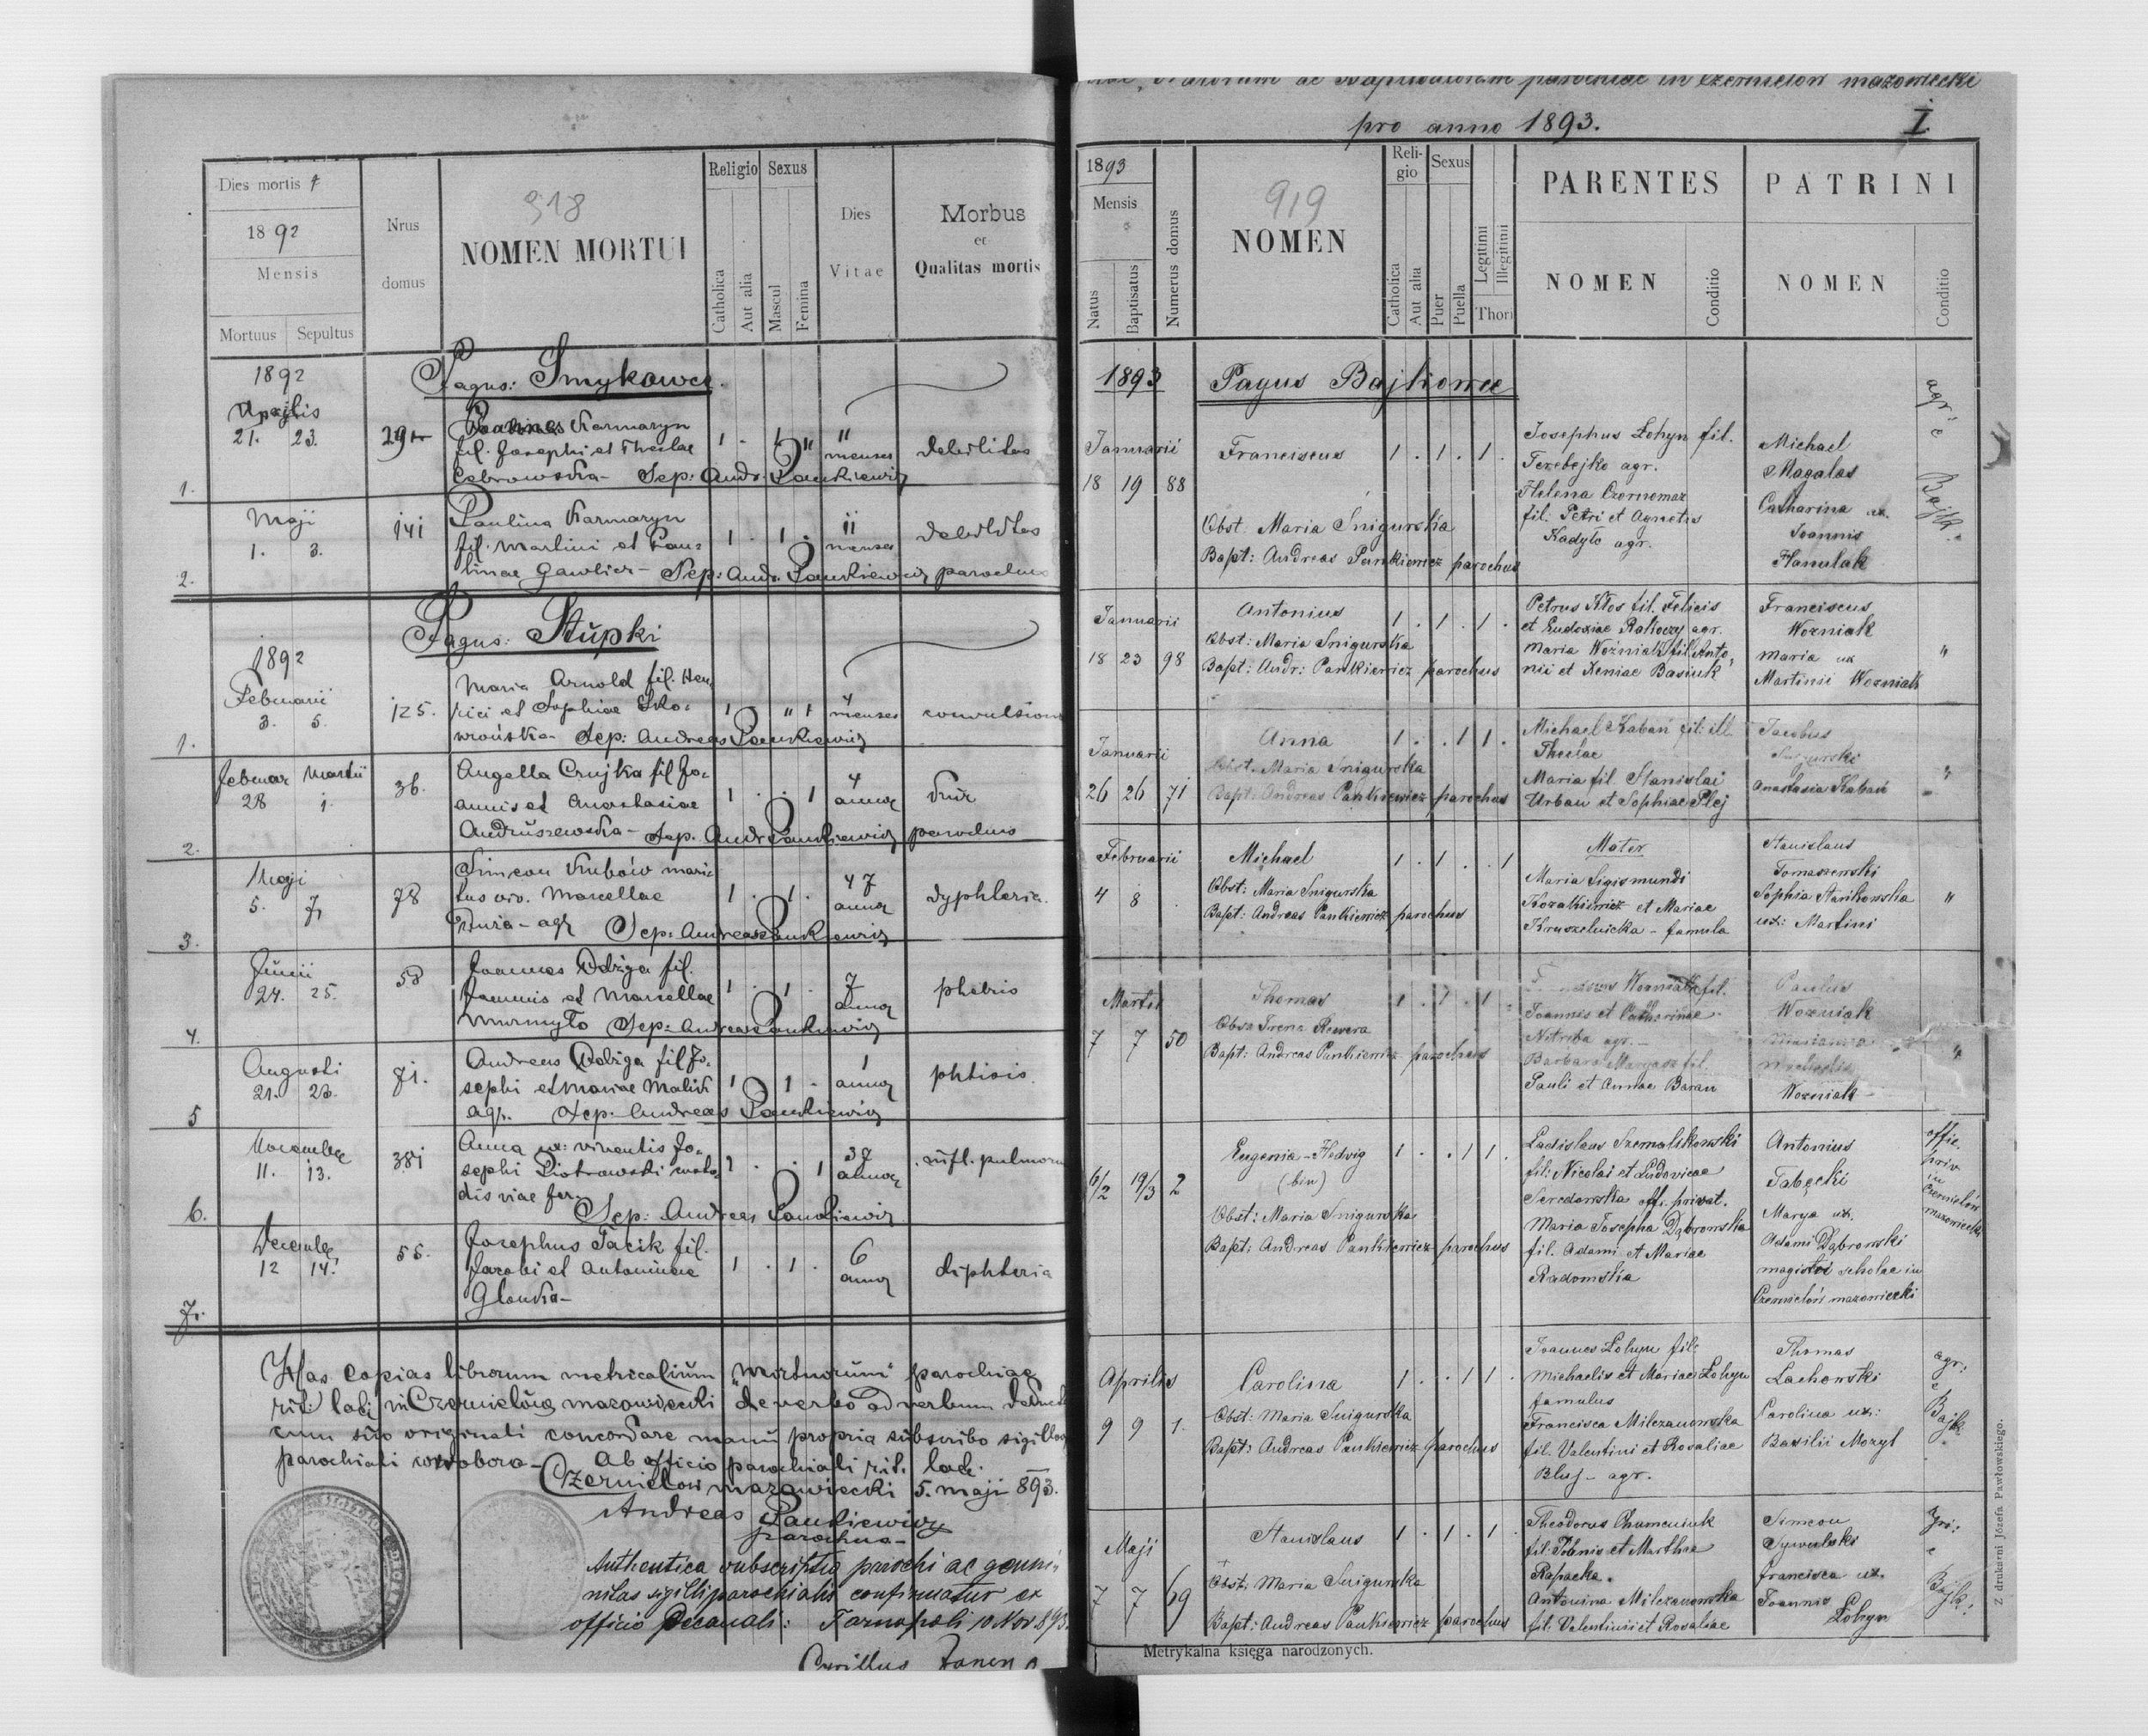 Dies mortis
1892
Mensis
Mortuus Sepultus
Nrus
domus
918
NOMEN MORTUI
Religio Sexus
Catholica
Aut alia
Mascul
Femina
Dies
Vitae
Morbus
et
Qualitas mortis
1892
Pagus: Smykowce.
Aprilis
21. 23.
Karmaryn
fil. Josephi et Theclae
Cebrowska - Sep: Andr. Pankiewicz
1 . 1 "
11
menses
debilitas
1.
Maji
1. 3.
141
Paulina Karmaryn
fil. Martini et Pau=
linae Gawlicz - Sep: Andr. Pankiewicz parochus
1 . 1 .
11
menses
debilitas
2.
Pagus: Stupki
1892
Februarii
3. 5.
125.
Maria Arnold fil. Hen
rici et Sophiae Sko=
wrońska - Sep: Andreas Pankiewicz
1 " 1
4
menses
1.
Februar Martii
28 1.
36.
Angella Crujka fil Jo=
annis et Anastasiae
Andruszewska - Sep. Andr Pankiewicz parochus
1 . . 1
4
annor
2.
Maji
5. 7.
78
Simeon Kubów mari=
tus viv. Marcellae
Duża - agr Sep: Andreas Pankiewicz
1 . 1 .
47
annor
dyphteria.
3.
Junii
24. 25.
58
Joannes Odziga fil.
Joannis et Marcellae
Murmyło Sep: Andreas Pankiewicz
1 . 1 .
7
annor
phebris
4.
Augusti
21. 23.
81.
Andreas Odziga fil Jo=
sephi et Mariae Malik
agr. Sep. Andreas Pankiewicz
1 1 .
1
annor
phtisis.
5
November
11. 13.
381
Anna ux: viventis Jo=
sephi Piotrowski
dis viae fer.
Sep: Andreas Pankiewicz
1 . . 1
annor
infl. pulmorum
6.
December
12 14.
55.
Josephus Tacik fil.
Jacobi et Antoninae
Glonka -
1 . 1 .
6
annor
diphteria
7.
Has copias librorum metricalium "mortuorum" parochiae
rit: lat: in Czernielów mazowiecki de verbo ad verbum
cum suo originali concordare manu propria subscribo sigilloq
parochiali corroboro -
Ab officio parochiali rit. lat.
Czernielow mazowiecki 5. maji 893.
Andreas Pankiewicz
parochus -
Authentica subscriptio parochi ac genui=
nitas sigilli parochialis confirmatur ex
officio Decanali: Tarnopoli 10 Nov. 893.
Cyrillus
Natorum ac Baptisatorum parochiae in Czernielów mazowiecki
pro anno 1893. I.
1893
Mensis
Natus
Baptisatus
Numerus domus
919
NOMEN
Reli-
gio
Sexus
Catholica
Aut alia
Puer
Puella
Legitimi
Illegitimi
Thori
PARENTES
NOMEN
Conditio
PATRINI
NOMEN
Conditio
1893 Pagus Bajkowce
Januarii
18 19 88
Franciscus
1 . 1 . 1 .
Obst. Maria Snigurska
Bapt: Andreas Pankiewicz parochus
Josephus Łohyn fil.
Terebejko agr.
Helena Czornomaz
fil. Petri et Agnetis
Kadyło agr.
Michael
Magalas
Catharina ux.
Joannis
Hanulak
agr. e
Bajk.
Januarii
18 23 98
Antonius
1 . 1 . 1 .
Obst: Maria Snigurska
Bapt: Andr: Pankiewicz parochus
Petrus Kłos fil. Felicis
et Eudoxiae Rakoczy agr.
Maria Woźniak fil. Anto=
nii et Xeniae Basiuk
Franciscus
Wozniak
Maria ux
Martinii Wozniak
"
Januarii
26 26 71
Anna
1 . . 1 1 .
Obst. Maria Snigurska
Bapt: Andreas Pankiewicz parochus
Michael Kaban fil: ill.
Theclae
Maria fil. Stanislai
Urban et Sophiae Plej
Jacobus
Snigurski
Anastasia Kaban
"
Februarii
4 8
Michael
1 . 1 . . 1
Obst: Maria Snigurska
Bapt: Andreas Pankiewicz parochus
Mater
Maria Sigismundi
Kozakiewicz et Mariae
Kruszelnicka - famula
Stanislaus
Tomaszewski
Sophia Stankowska
ux: Martini
"
Martii
7 7 50
Thomas
1 . 1 . 1 .
Obst Irena Rewera
Bapt: Andreas Pankiewicz parochus
Wozniak fil.
Joannis et Catharinae
Netreba agr. -
Barbara fil.
Pauli et Annae Baran
Paulus
Wozniak
Marianna
Michaelis
Wozniak -
"
6/2 19/3 2
Eugenia-Hedvig
(bin)
1 . . 1 1 .
Obst: Maria Snigurska
Bapt: Andreas Pankiewicz parochus
Ladislaus
fil: Nicolai et Ludovicae
Seredowska off. privat.
Maria Josepha Dąbrowska
fil. Adami et Mariae
Radomska
Antonius
Tabęcki
Marya ux.
Adami Dąbrowski
magistri scholae in
Czernielów mazowiecki
offic.
priv
in
Czernielów
mazowiecki
Aprilis
9 9 1.
Carolina
1 . . 1 1 .
Obst: Maria Snigurska
Bapt: Andreas Pankiewicz parochus
Joannes Łohyn fil:
Michaelis et Mariae Łohyn
famulus
Francisca Milczanowska
fil. Valentini et Rosaliae
Bluj - agr.
Thomas
Lachowski
Carolina ux:
Basilii Mozyl
agr:
e
Bajk.
Maji
7 7 69
Stanislaus
1 . 1 . 1 .
Obst: Maria Snigurska
Bapt: Andreas Pankiewicz parochus
Theodorus Chumeniuk
fil. Joannis et Marthae
Rapacka.
Antonina Milczanowska
fil. Valentinii et Rosaliae
Simeon
Sywulski
Francisca ux.
Joannis
Łohyn
agr:
e
Bajk:
Metrykalna księga narodzonych.
Z drukarni Józefa Pawłowskiego.